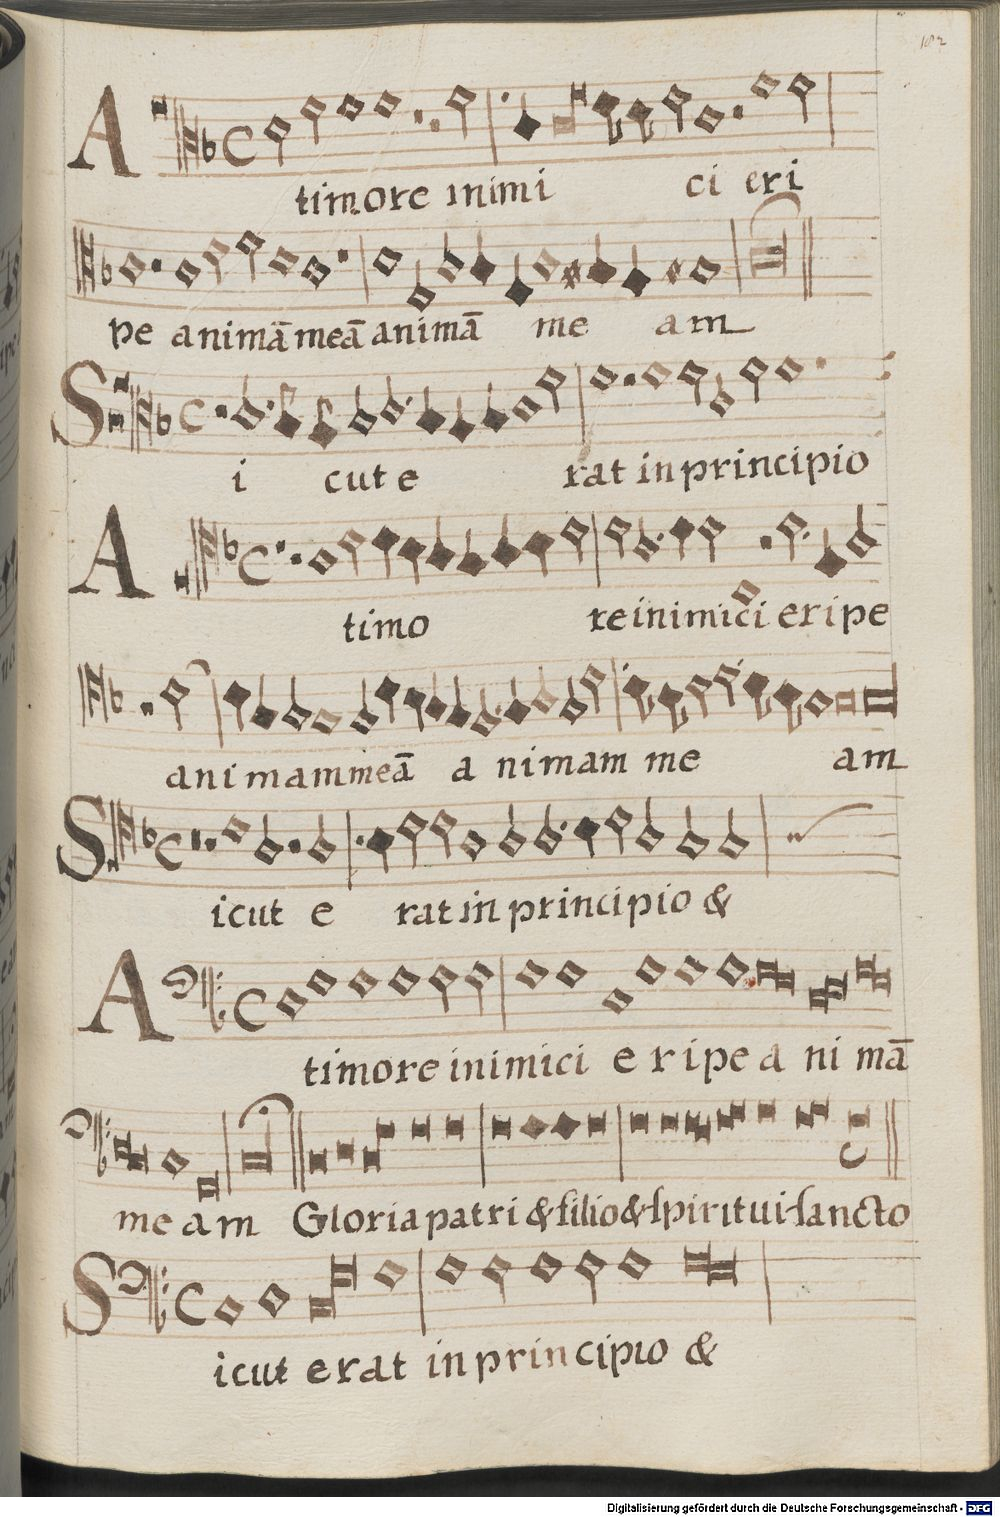 182
A timore inimi ci eri
pe animā meā animā me am
S i cut e rat in principio
A timo re inimici eripe
animam meā a nimam me am
S icut e rat in principio &
A timore inimici e ripe a ni mā
me am Gloria patri & filio & spiritui sancto
S icut erat in principio &
Digitalisierung gefördert durch die Deutsche Forschungsgemeinschaft - DFG